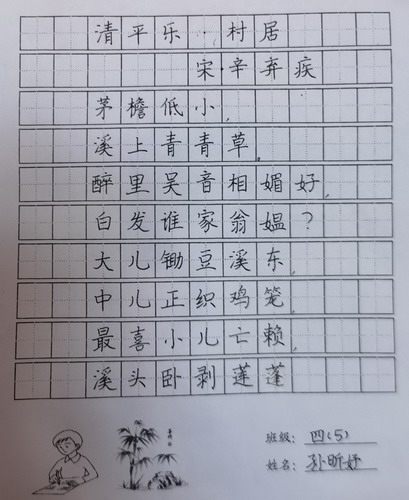 清平乐·村居
宋·辛弃疾
茅檐低小,
溪上青青草。
醉里吴音相媚好,
白发谁家翁媪?
大儿锄豆溪东,
中儿正织鸡笼。
最喜小儿亡赖,
溪头卧剥莲蓬
班级: 四(5)
姓名: 孙昕妤